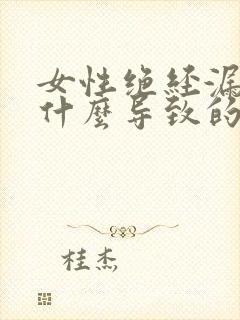 女性绝经漏
什麼导致的
桂杰